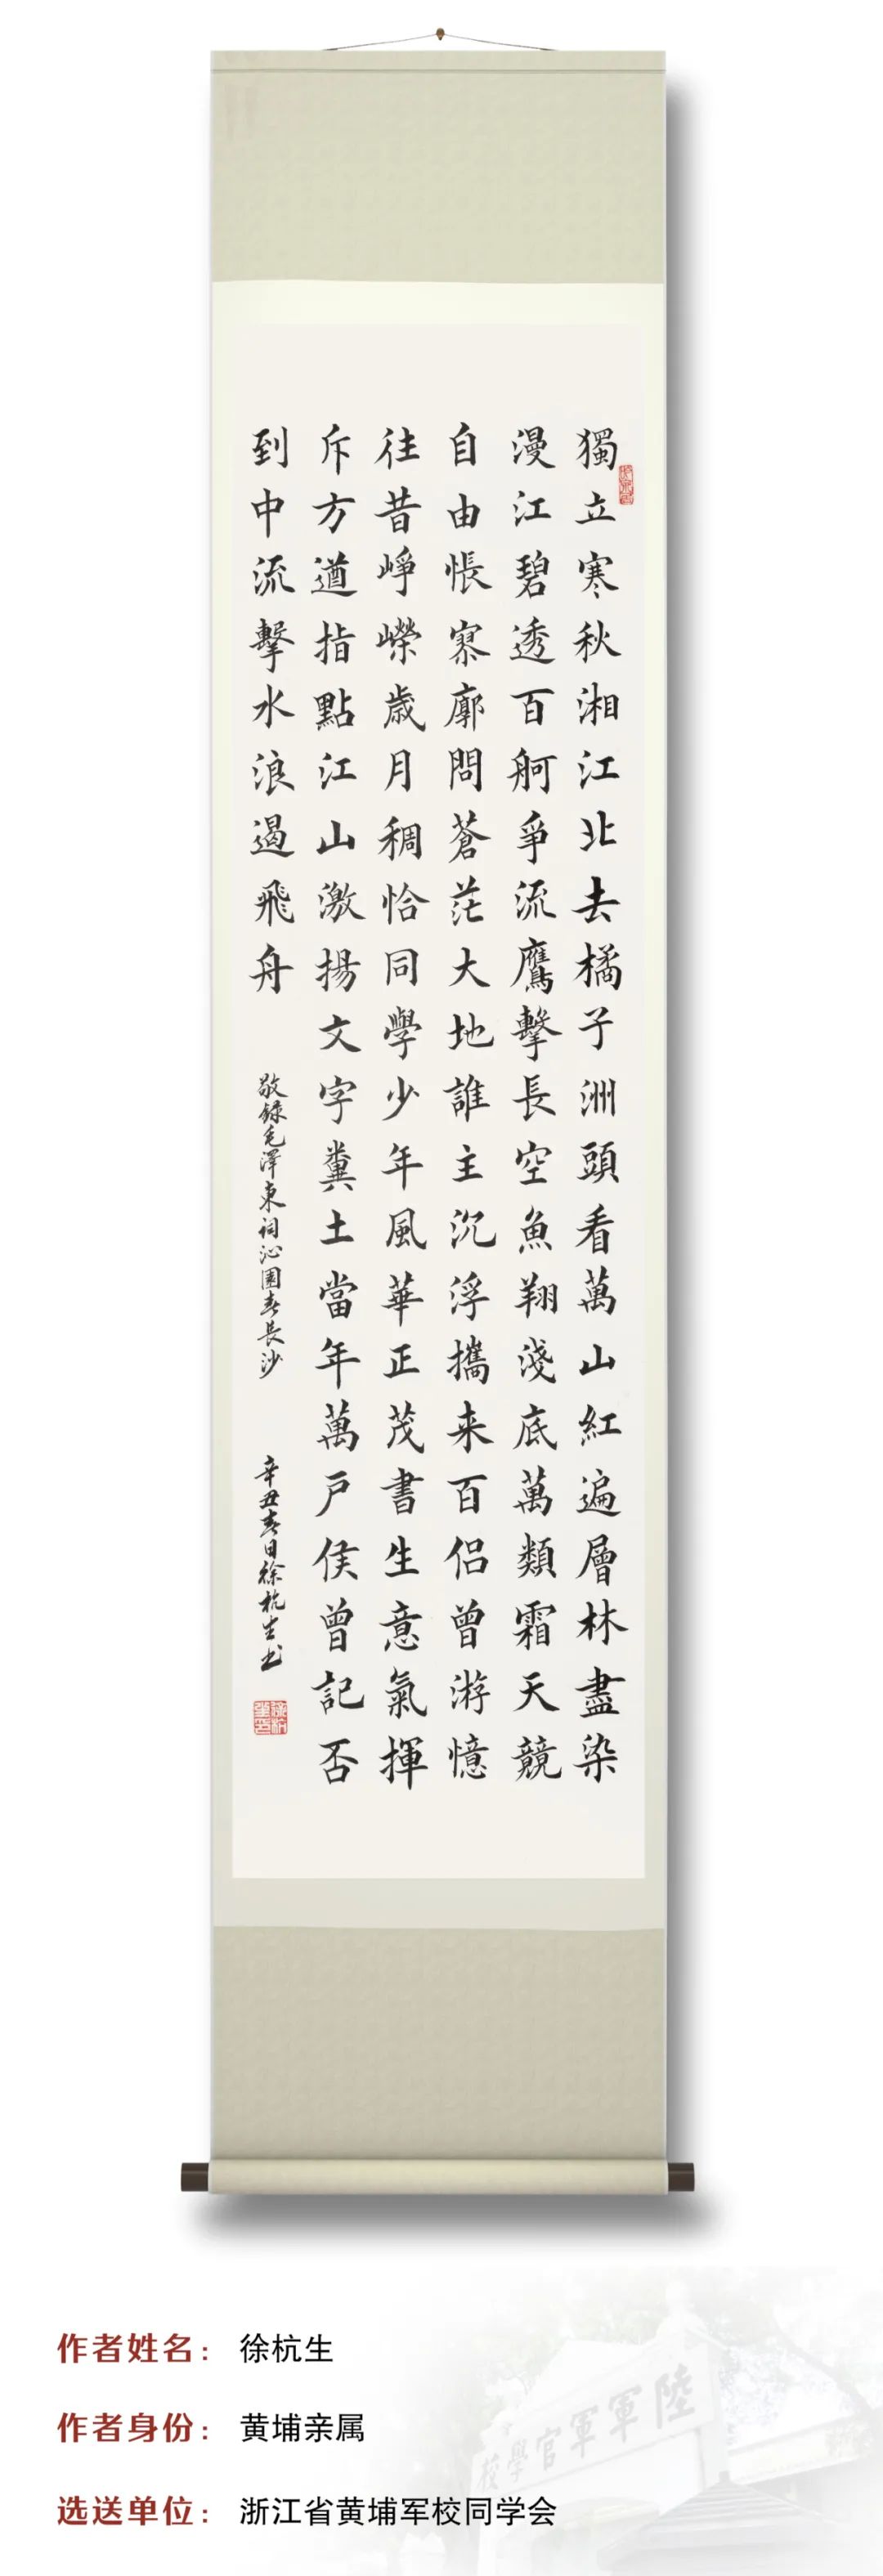 獨立寒秋湘江北去橘子洲頭看萬山紅遍層林盡染
漫江碧透百舸爭流鷹擊長空魚翔淺底萬類霜天競
自由悵寥廓問蒼茫大地誰主沉浮攜来百侣曾游憶
往昔崢嶸歲月稠恰同學少年風華正茂書生意氣揮
斥方遒指點江山激揚文字糞土當年萬戶侯曾記否
到中流擊水浪遏飛舟
敬録毛澤東词沁園春長沙
辛丑春日徐杭生书
徐杭生印
作者姓名：徐杭生
作者身份：黄埔亲属
选送单位：浙江省黄埔军校同学会
陸軍軍官學校